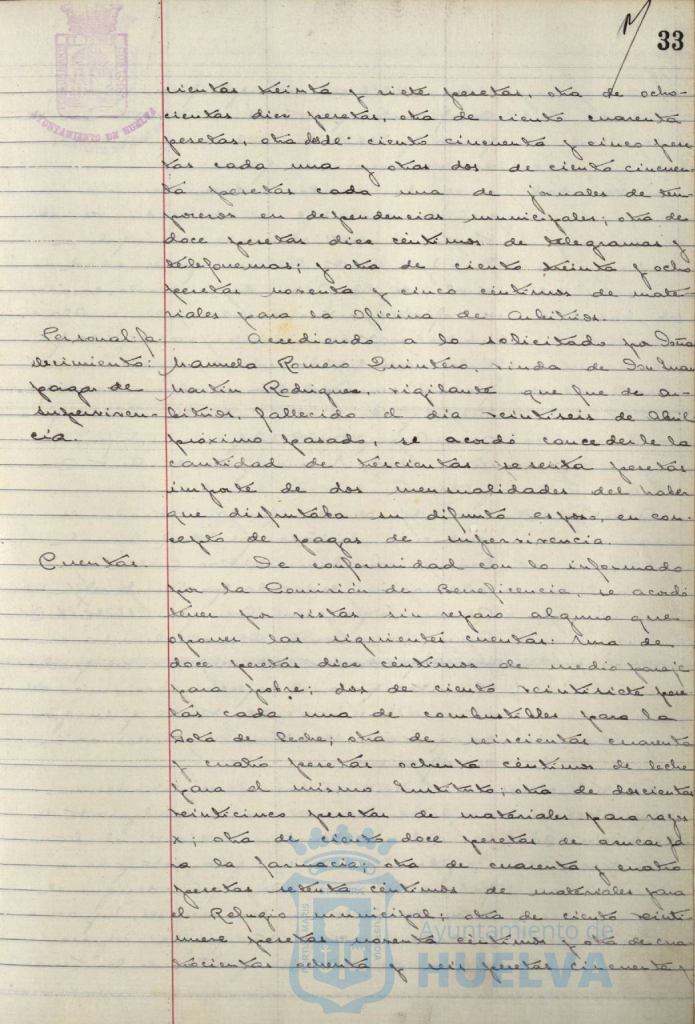 33
AYUNTAMIENTO DE HUELVA
cientas treinta y siete pesetas, otra de ocho-
cientas diez pesetas, otra de ciento cuarenta
pesetas, otra dode ciento cincuenta y cinco pese
tas cada una y otras dos de ciento cincuen
ta pesetas cada una de jornales de tem
poreros en dependencias municipales; otra de
doce pesetas diez céntimos de telegramas y
telefonemas; y otra de ciento treinta y ocho
pesetas noventa y cinco céntimos de mate
riales para la Oficina de Arbitrios.
Personal fa
llecimiento:
pagas de
supervivien-
cia.
Accediendo a lo solicitado por Doña
Manuela Romero Quintero, viuda de Don Juan
Martín Rodriguez, vigilante que fue de ar-
bitrios, fallecido el día veintiseis de Abril
próximo pasado, se acordó concederle la
cantidad de trescientas sesenta pesetas
importe de dos mensualidades del haber
que disfrutaba su difunto esposo, en con-
cepto de pagas de supervivencia.
Cuentas.
De conformidad con lo informado
por la Comisión de Beneficencia, se acordó
tener por vistas sin reparo alguno que
oponer las siguientes cuentas: Una de
doce pesetas diez céntimos de medio pasaje
para pobre; dos de ciento veintisiete pese
tas cada una de combustibles para la
Gota de leche; otra de seiscientas cuarenta
y cuatro pesetas ochenta céntimos de leche
para el mismo Instituto; otra de doscientas
veinticinco pesetas de materiales para rayos
x; otra de ciento doce pesetas de azucar pa
ra la farmacia; otra de cuarenta y cuatro
pesetas setenta céntimos de materiales para
el Refugio municipal; otra de ciento veinti
nueve pesetas noventa céntimos y otra de cua
trocientas ochenta y seis pesetas cincuenta y
Ayuntamiento de
HUELVA